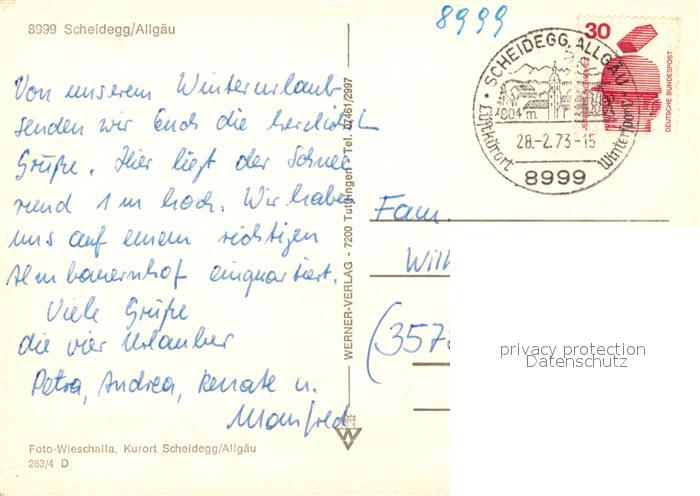 8999 Scheidegg/Allgäu
8999
Von unserem Winterurlaub
senden wir Euch die herzlichsten
Grüße. Hier liegt der Schnee
rund 1 m hoch. Wir haben
uns auf einem richtigen
Almbauernhof einquartiert.
Viele Grüße
die vier Urlauber
Petra, Andrea, Renate u.
Manfred
Foto-Wieschalla, Kurort Scheidegg/Allgäu
263/4 D
WERNER-VERLAG - 7200 Tuttlingen - Tel. 07461/2997
SCHEIDEGG, ALLGÄU
804 m
28.-2.73-15
Luftkurort
Wintersport
8999
30
DEUTSCHE BUNDESPOST
Fam.
Wilh
(357
privacy protection
Datenschutz